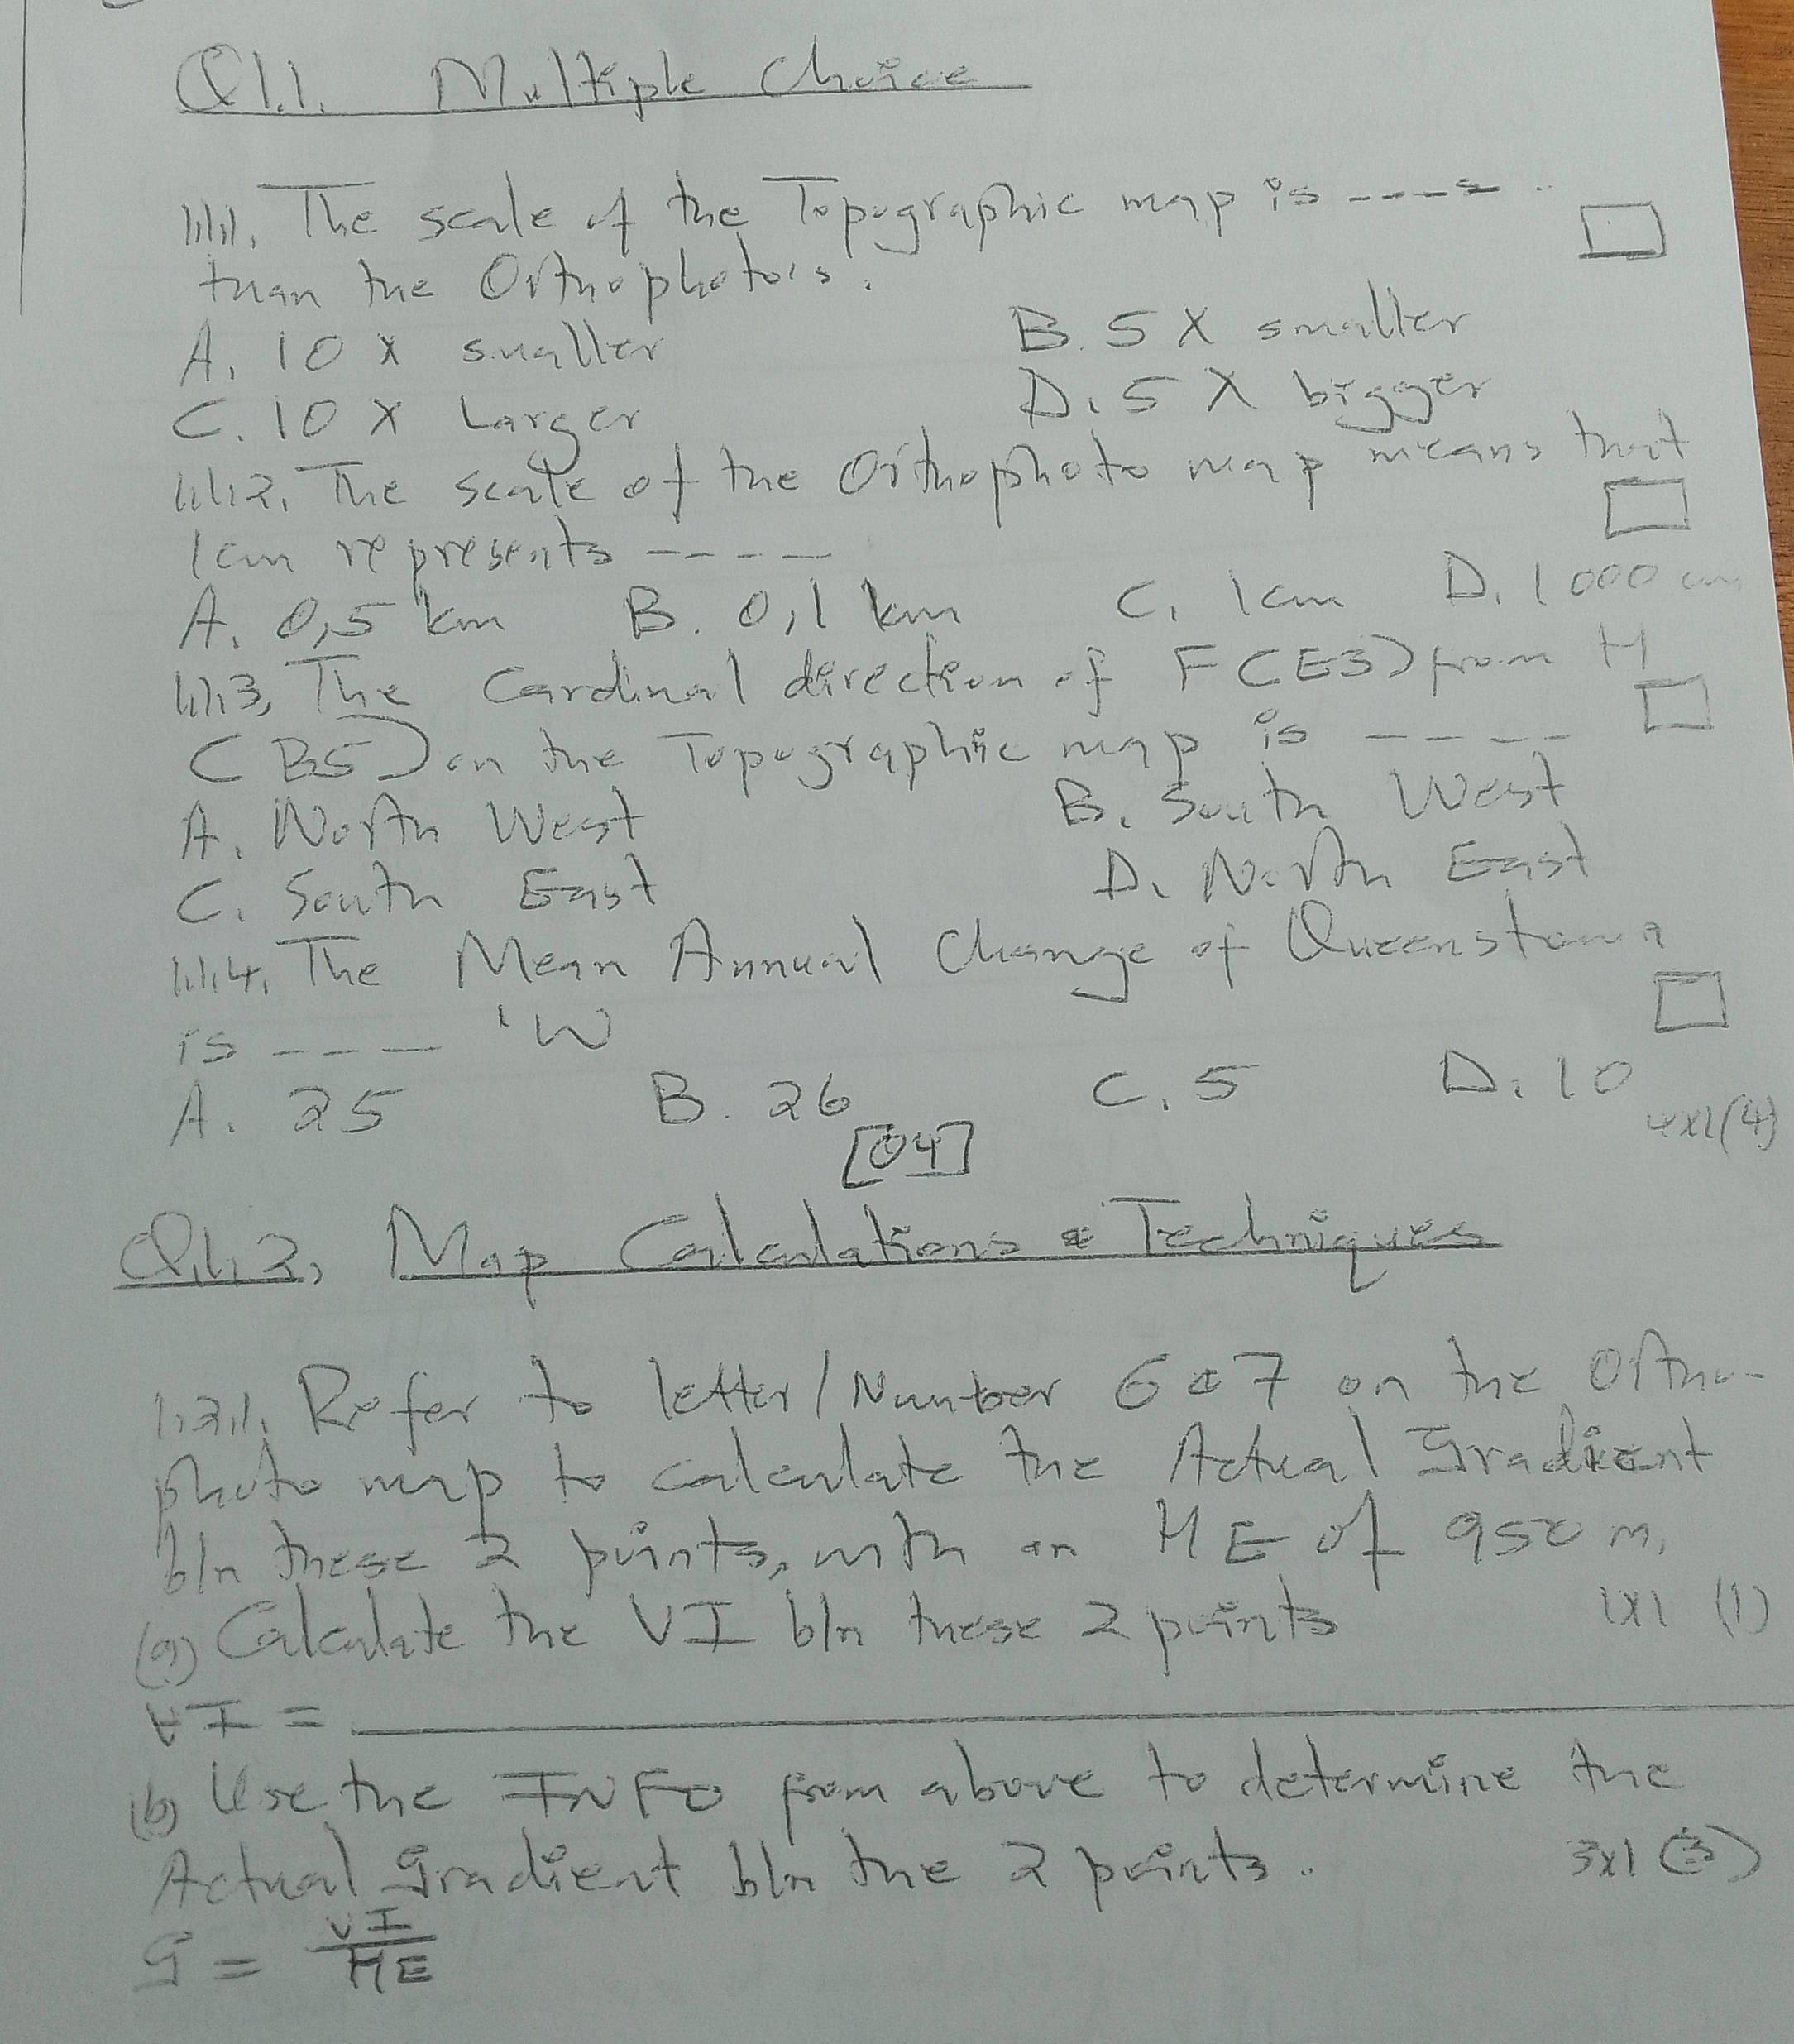 Q1.1. Multiple Choice
1.1.1. The scale of the Topographic map is ----.
than the Orthophoto's.
A. 10 x smaller B. 5 X smaller
C. 10 x Larger D. 5 X bigger
1.1.2. The scale of the Orthophoto map means that
1cm represents -----
A. 0,5 km B. 0,1 km C. 1cm D. 1000 cm
1.1.3. The Cardinal direction of F (E3) from H
(B5) on the Topographic map is ----
A. North West B. South West
C. South East D. North East
1.1.4. The Mean Annual Change of Queenstown
is --- 'W
A. 25 B. 26 C. 5 D. 10
4x1(4)
[04]
Q1.2. Map Calculations & Techniques
1.2.1. Refer to letter/Number 6 & 7 on the Ortho-
photo map to calculate the Actual Gradient
b/n these 2 points, with an HE of 950 m.
(a) Calculate the VI b/n these 2 points 1x1 (1)
VI =
(b) Use the INFO from above to determine the
Actual Gradient b/n the 2 points. 3x1 (3)
G = VI
HE